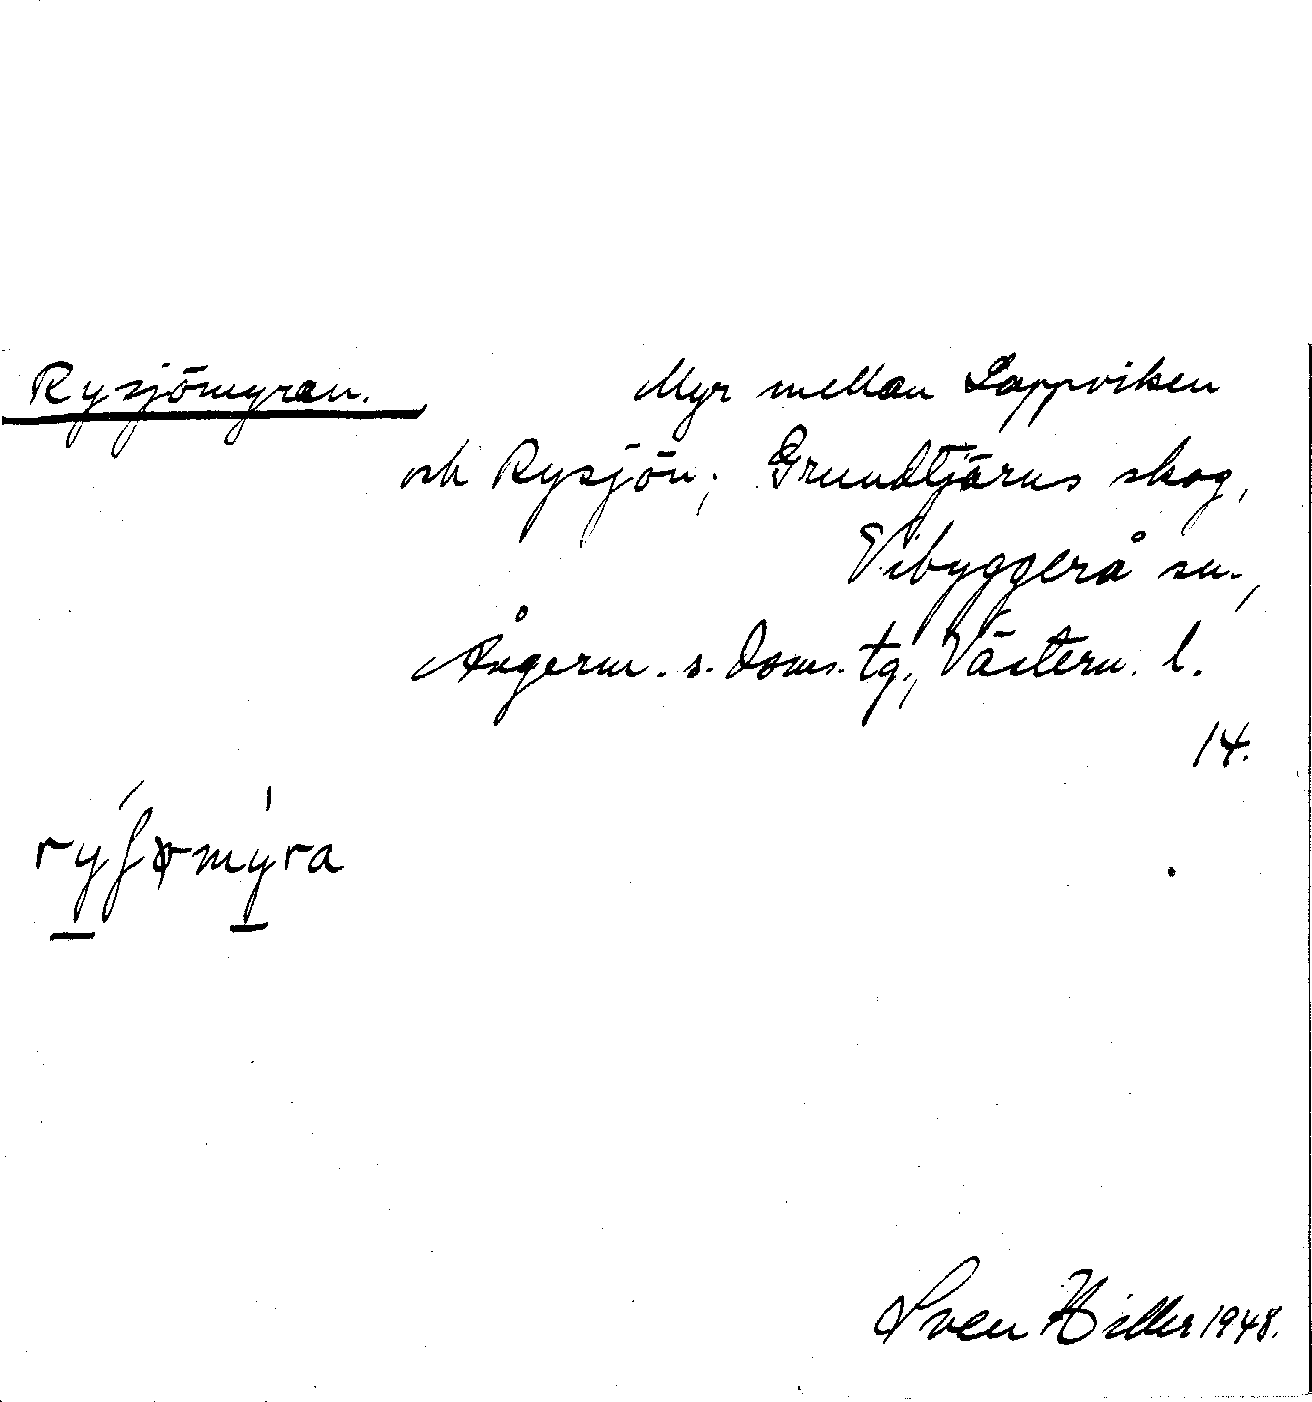 Rysjömyran. Myr mellan Lappviken
och Rysjön; Grundtjärns skog,
Vibyggerå sn.,
Ångerm. s. doms. tg., Västern. l.
14.
Sven Hiller 1948.